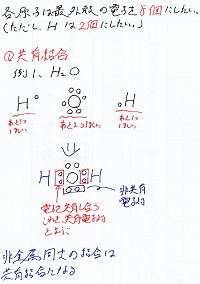 各原子は最外殻の電子を8個にしたい。
(ただし、Hは2個にしたい。)
①共有結合
例1、H₂O
H O H
あと1つほしい あと2つほしい あと1つほしい
H O H
非共有電子対
電子を共有し合う
これを、共有電子対
とよぶ
非金属同士の結合は
共有結合になる